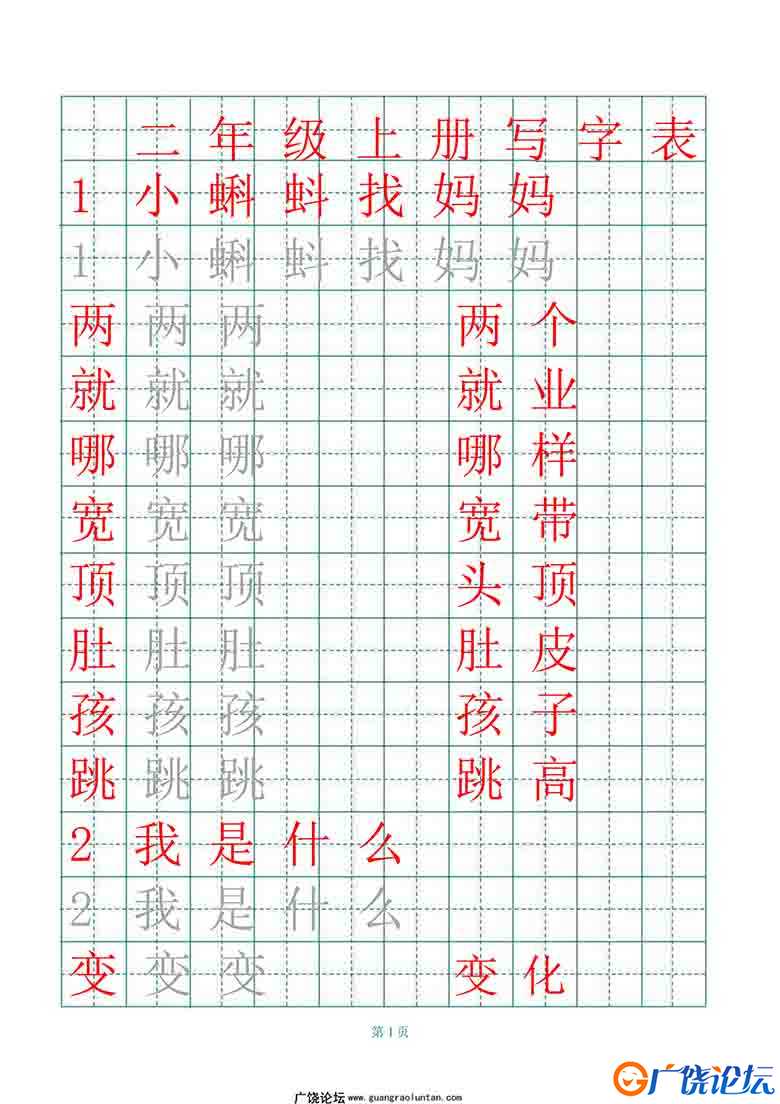 二年级上册写字表
1小蝌蚪找妈妈
1小蝌蚪找妈妈
两两两 两个
就就就 就业
哪哪哪 哪样
宽宽宽 宽带
顶顶顶 头顶
肚肚肚 肚皮
孩孩孩 孩子
跳跳跳 跳高
2我是什么
2我是什么
变变变 变化
第1页
广饶论坛
广饶论坛 www.guangraoluntan.com